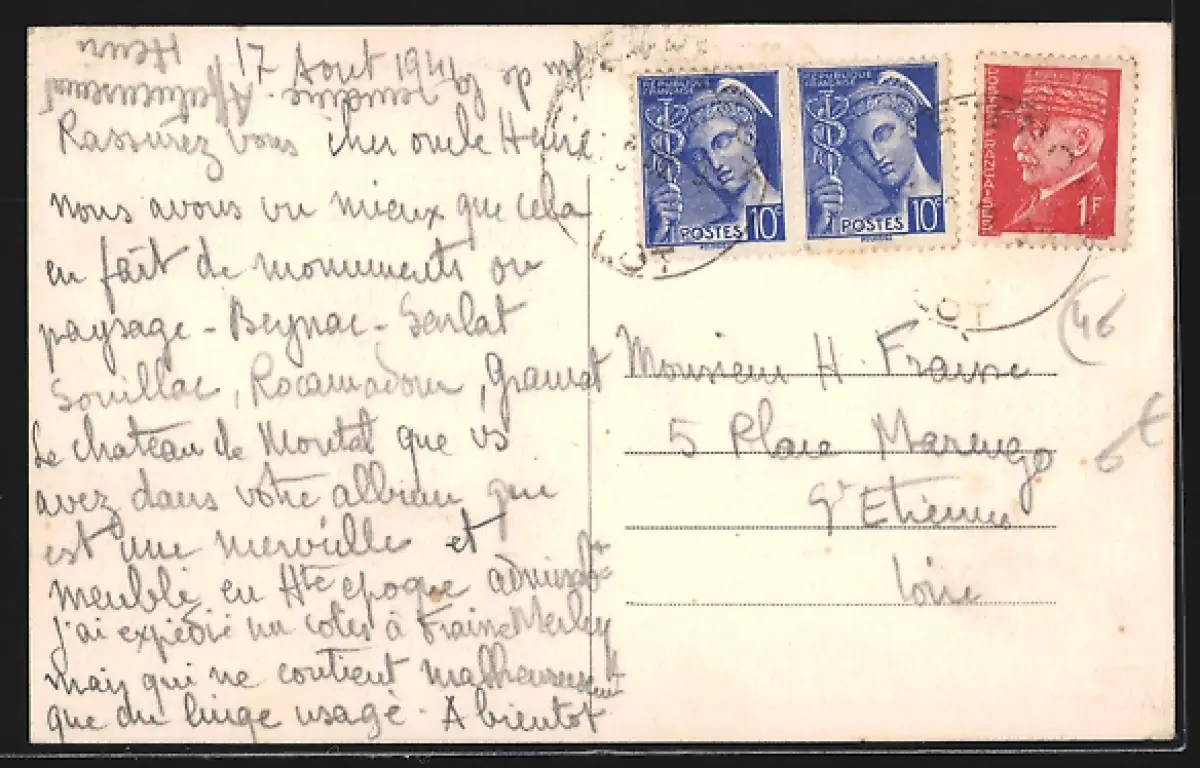 17 Aout 1941
Rassurez vous cher oncle Henri
nous avons vu mieux que cela
en fait de monuments ou
paysage - Beynac - Sarlat
Souillac, Rocamadour, Gramat
Le chateau de Montal que vs
avez dans votre album que
est une merveille et
meublé en Hte epoque
j'ai expédié un colis à Fraine Merley
mais qui ne contient malheureusement
que du linge usagé. A bientot
Affectueusement
Henri
REPUBLIQUE FRANÇAISE
POSTES 10c
REPUBLIQUE FRANÇAISE
POSTES 10c
POSTES FRANÇAISES
1F
LOT
LOT
46
6€
Monsieur H. Fraine
5 Place Marengo
St Etienne
Loire